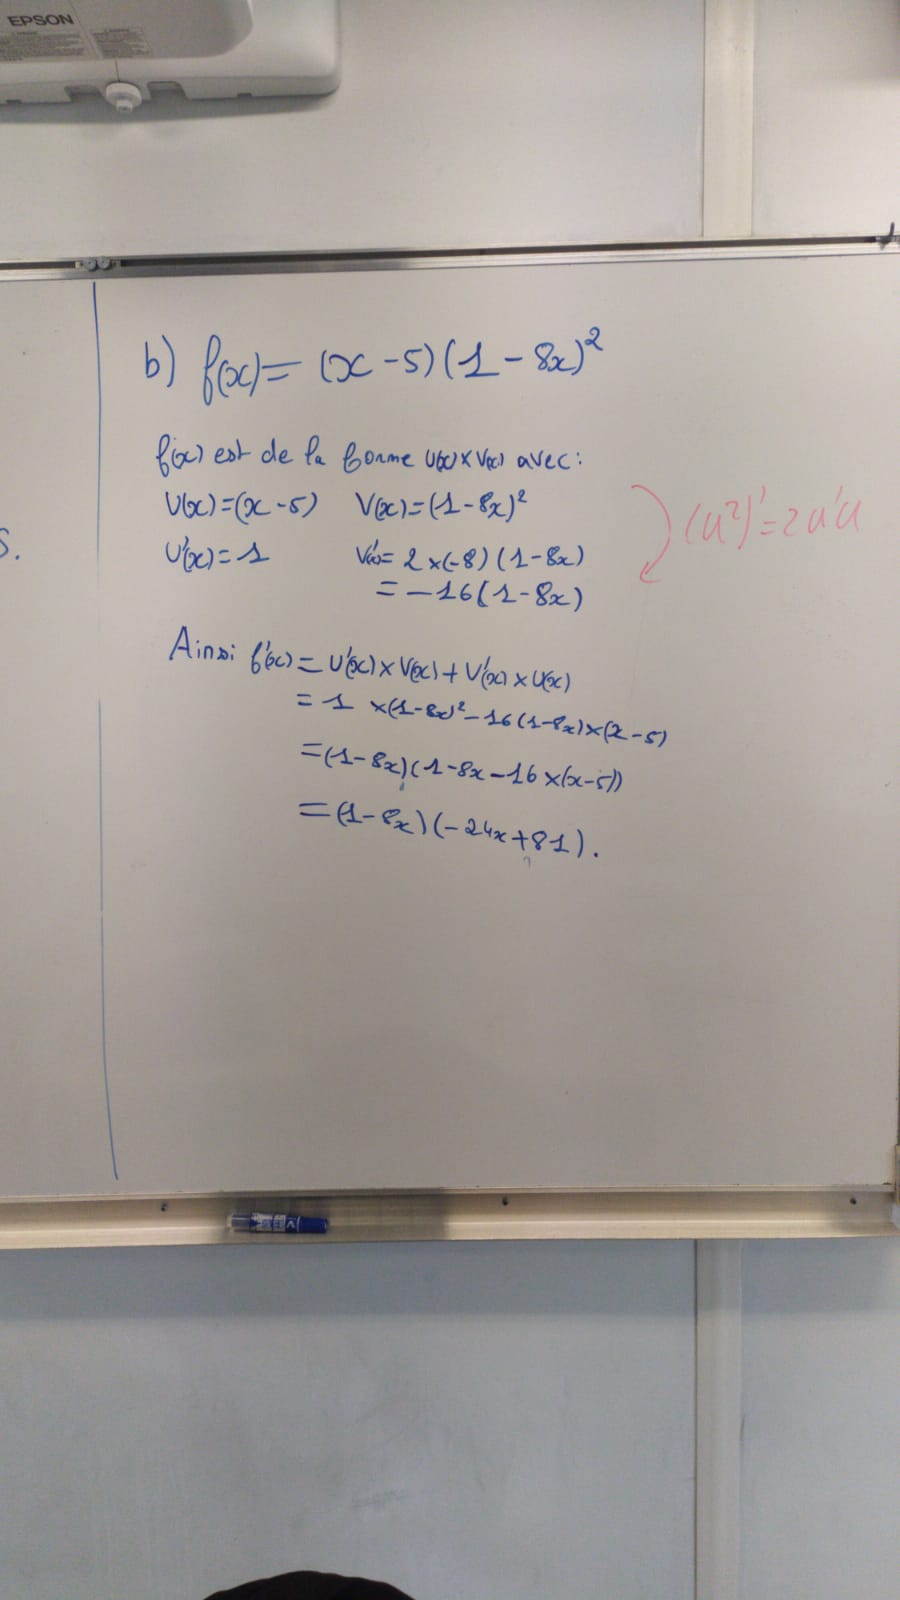 EPSON
b) f(x) = (x - 5)(1 - 8x)²
f(x) est de la forme U(x) x V(x) avec :
U(x) = (x - 5) V(x) = (1 - 8x)²
U'(x) = 1 V'(x) = 2 x (-8) (1 - 8x)
= -16(1 - 8x)
(u²)' = 2u'u
s.
Ainsi f'(x) = U'(x) x V(x) + V'(x) x U(x)
= 1 x (1 - 8x)² - 16(1 - 8x) x (x - 5)
= (1 - 8x)(1 - 8x - 16 x (x - 5))
= (1 - 8x)(-24x + 81).